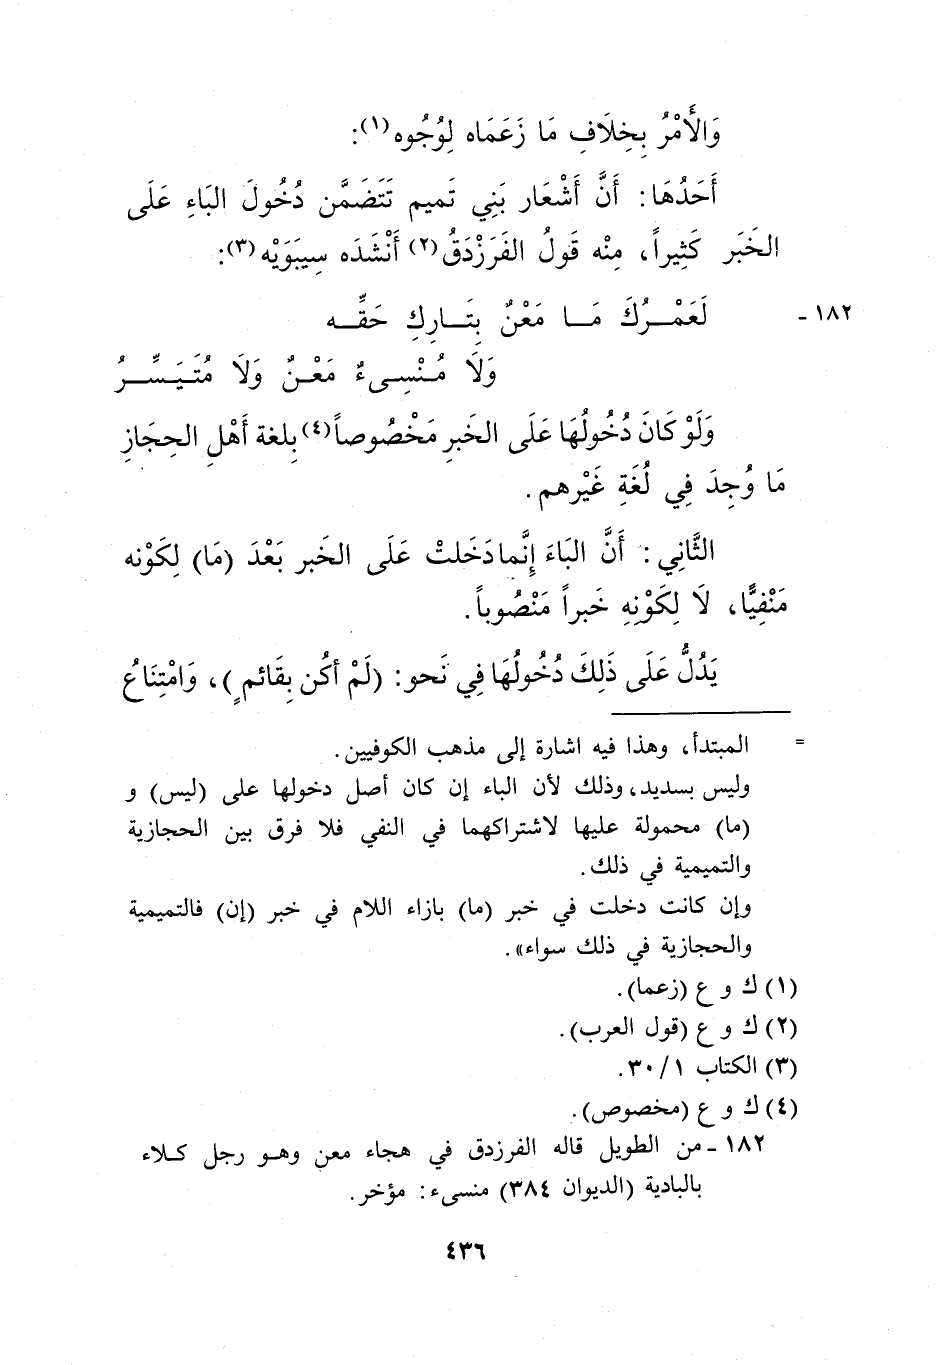 وَالأَمْرُ بِخِلَافِ مَا زَعَمَاه لِوُجُوه(١):
أَحَدُهَا: أَنَّ أَشْعَار بَنِي تَميم تَتَضَمَّن دُخُولَ البَاءِ عَلَى
الخَبَر كَثِيراً، مِنْه قَولُ الفَرَزْدَقُ(٢) أَنْشَدَه سِيبَوَيْه(٣):
١٨٢ - لَعَمْــرُكَ مَــا مَعْنٌ بِتَــارِكِ حَقِّــه
وَلَا مُـنْسِـىءٌ مَعْـنٌ وَلَا مُتَـيَـسِّــرُ
وَلَوْ كَانَ دُخُولُهَا عَلَى الخَبرِ مَخْصُوصاً(٤) بِلغة أَهْلِ الحِجَازِ
مَا وُجِدَ فِي لُغَةِ غَيْرهم.
الثَّانِي: أَنَّ البَاءَ إِنَّما دَخَلتْ عَلَى الخَبر بَعْدَ (مَا) لِكَوْنه
مَنْفِيًّا، لَا لِكَوْنِهِ خَبراً مَنْصُوباً.
يَدُلُّ عَلَى ذَلِكَ دُخُولُهَا فِي نَحو: (لَمْ أكُن بِقَائمٍ)، وَامْتِنَاعُ
= المبتدأ، وهذا فيه اشارة إلى مذهب الكوفيين.
وليس بسديد، وذلك لأن الباء إن كان أصل دخولها على (ليس) و
(ما) محمولة عليها لاشتراكهما في النفي فلا فرق بين الحجازية
والتميمية في ذلك.
وإن كانت دخلت في خبر (ما) بازاء اللام في خبر (إن) فالتميمية
والحجازية في ذلك سواء».
(١) ك و ع (زعما).
(٢) ك و ع (قول العرب).
(٣) الكتاب ١/ ٣٠.
(٤) ك و ع (مخصوص).
١٨٢ - من الطويل قاله الفرزدق في هجاء معن وهـو رجل كـلاء
بالبادية (الديوان ٣٨٤) منسىء: مؤخر.
٤٣٦